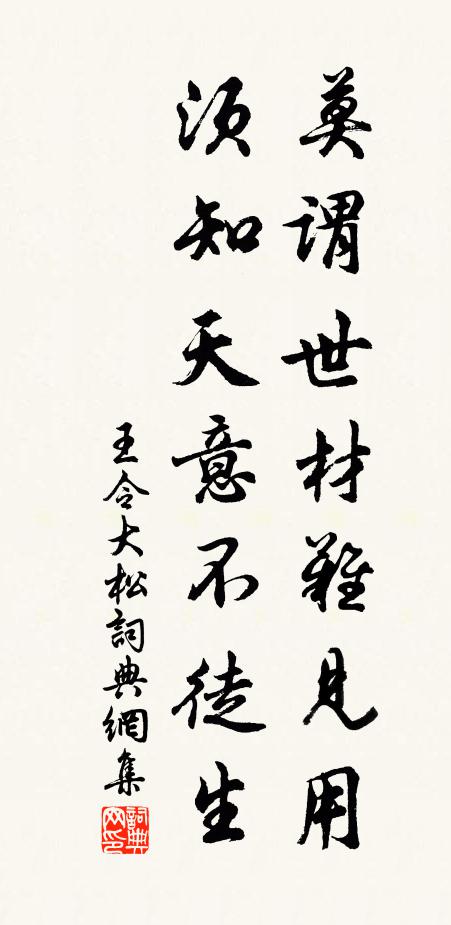 莫謂世材難見用
須知天意不徒生
王令大松詞典網集
詞典网印